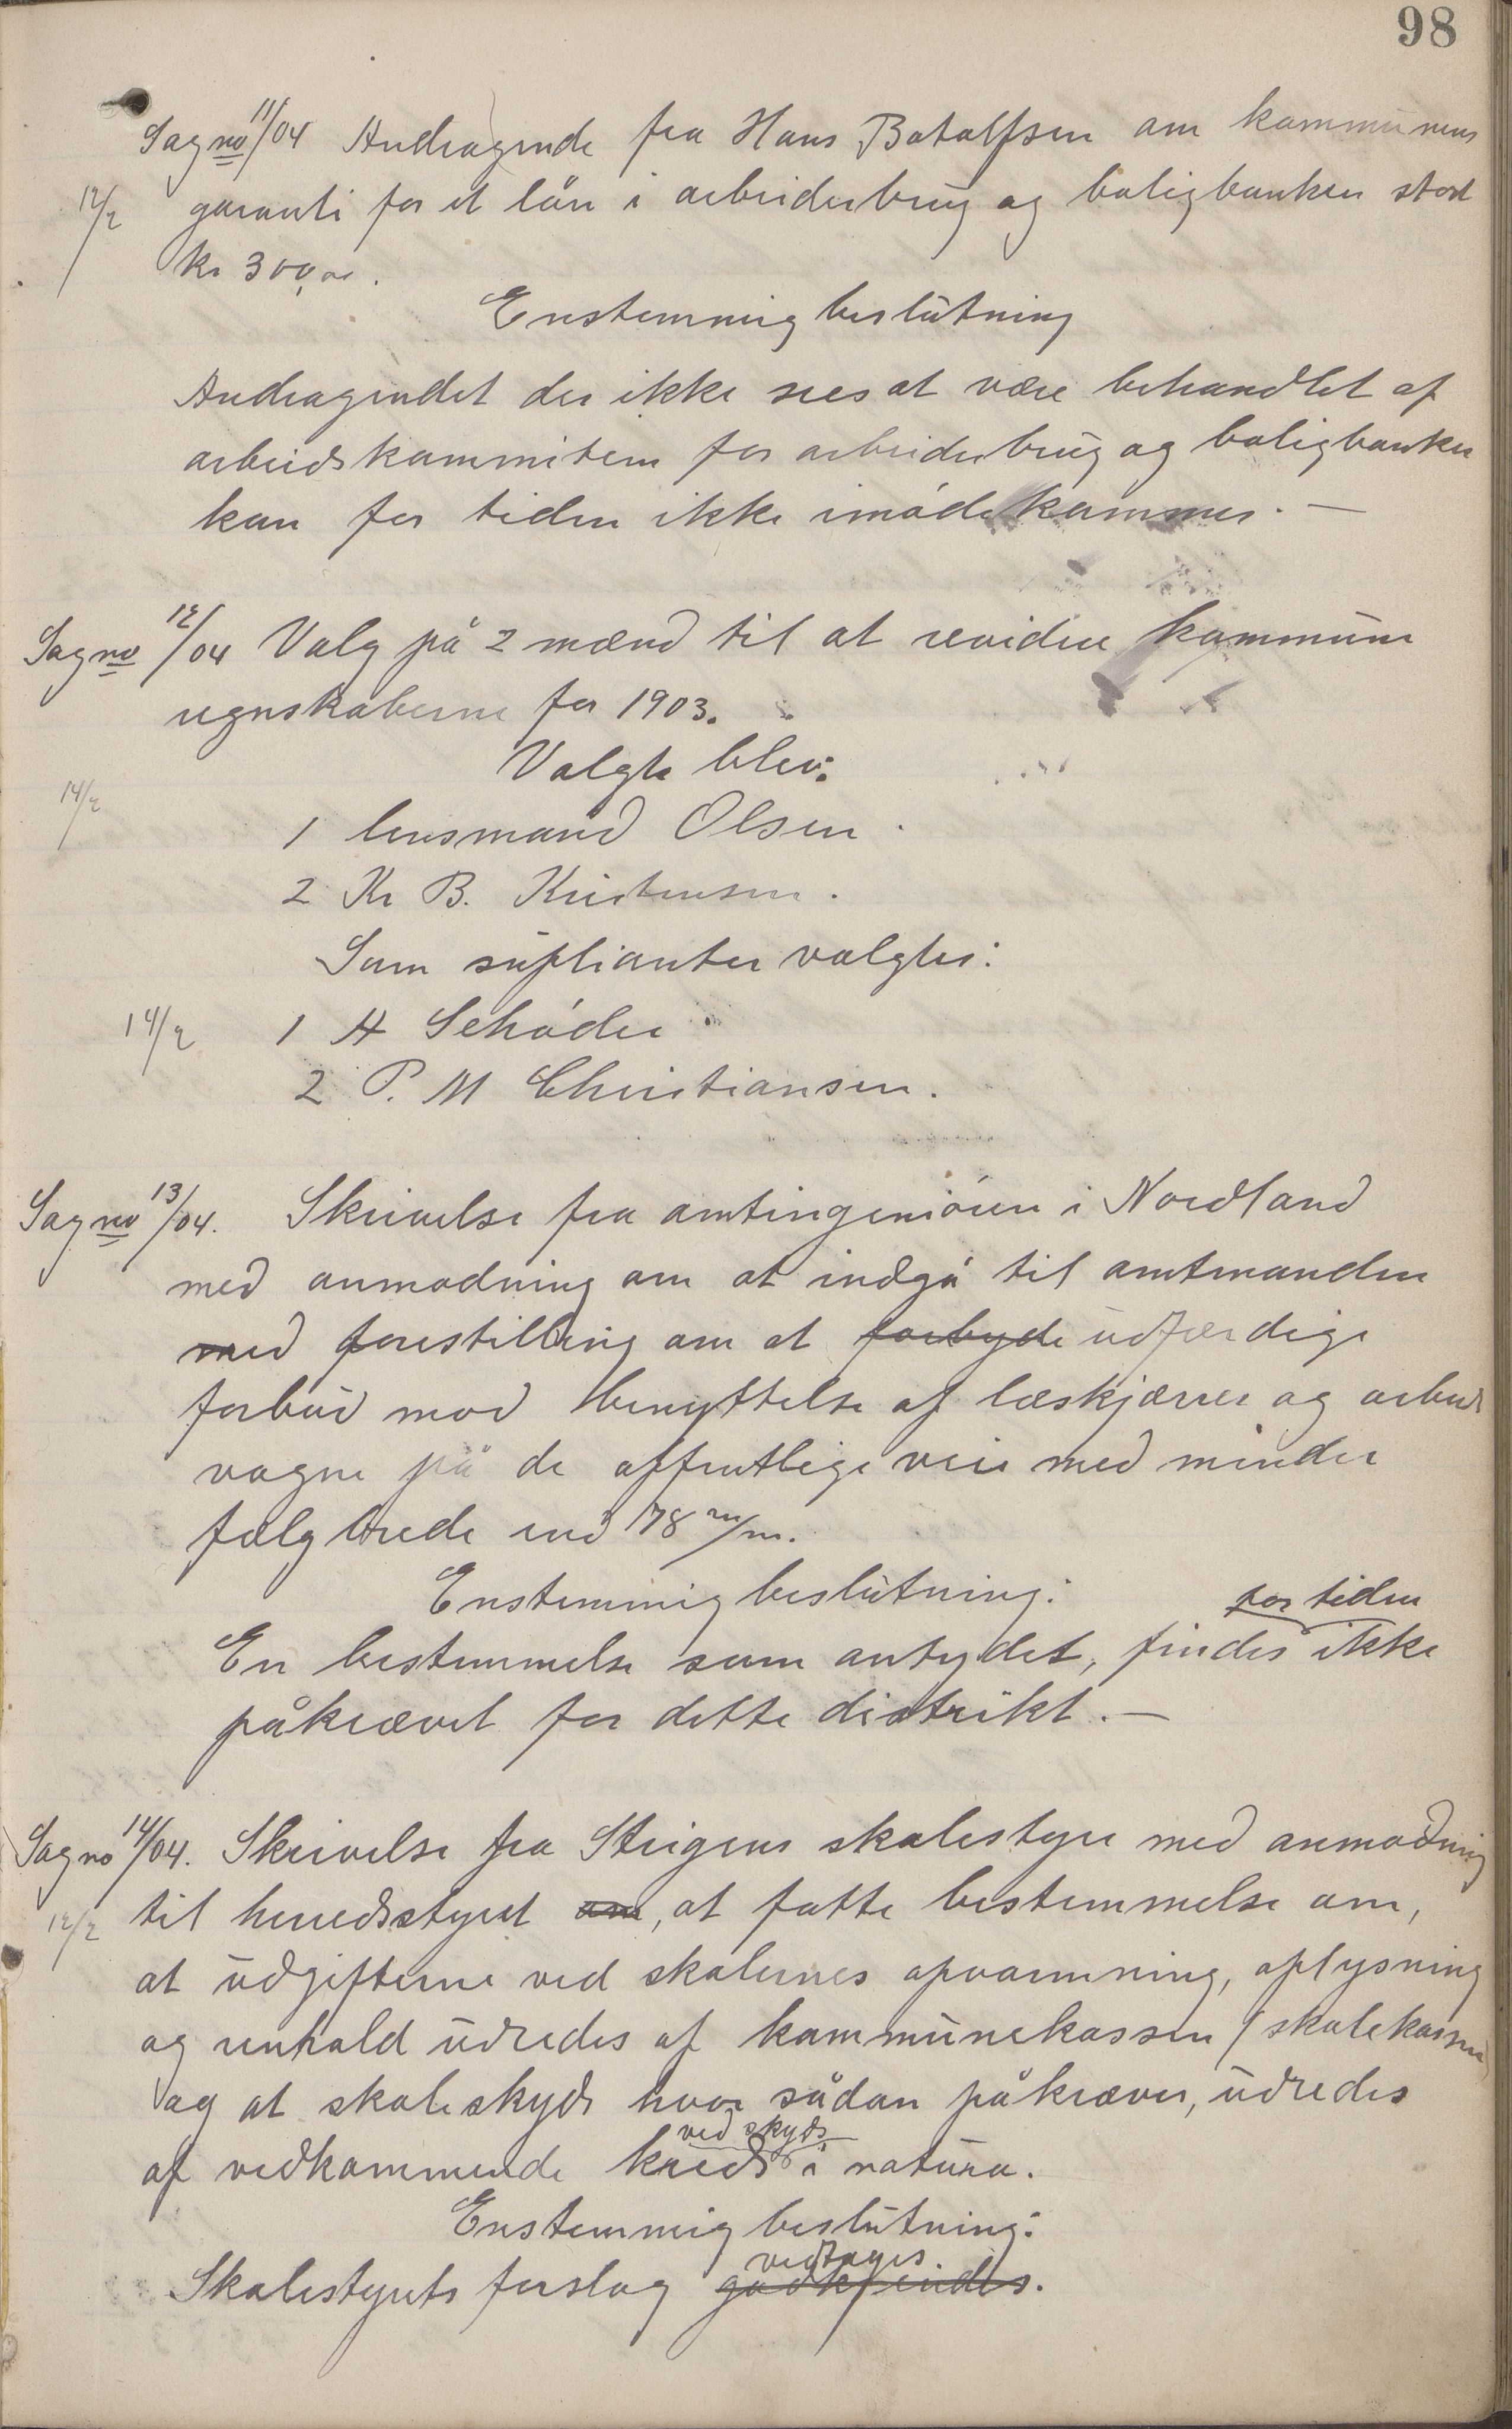 98
Sag no 11/04 Andragende fra Hans Botolfsen om kommunens
12/2 garanti for et lån i arbeiderbrug og boligbanken stort
kr 300,00.
Enstemmig beslutning
Andragendet der ikke sees at være behandlet af
arbeidskommiteen for arbeiderbrug og boligbanken
kan for tiden ikke imødekommes. —
Sag no 12/04 Valg på 2 mænd til at revidere kommune
regnskaberne for 1903.
Valgte blev:
14/2
1 lensmand Olsen.
2 Kr B. Kristensen.
Som suplianter valgtes:
14/2 1 H Schøder
2 P. M Christiansen.
Sag no 13/04. Skrivelse fra amtingeniøren i Nordland
med anmodning om at indgå til amtmanden
med forestilling om at forbyde udfærdige
forbud mod benyttelse af læskjærrer og arbeids
vogne på de offentlige veie med mindre
fælgbrede end 78 m/m.
Enstemmig beslutning:
for tiden
En bestemmelse som antydet, findes ikke
påkrævet for dette distrikt. —
Sag no 14/04. Skrivelse fra Steigens skolestyre med anmodning
12/2 til herredsstyret om, at fatte bestemmelse om,
at udgifterne ved skolernes opvarmning, oplysning
og renhold udredes af kommunekassen (skolekassen)
og at skoleskyds hvor sådan påkræves, udredes
ved skyds
af vedkommende kreds i natura.
Enstemmig beslutning:
vedtages.
Skolestyrets forslag godkjendes.